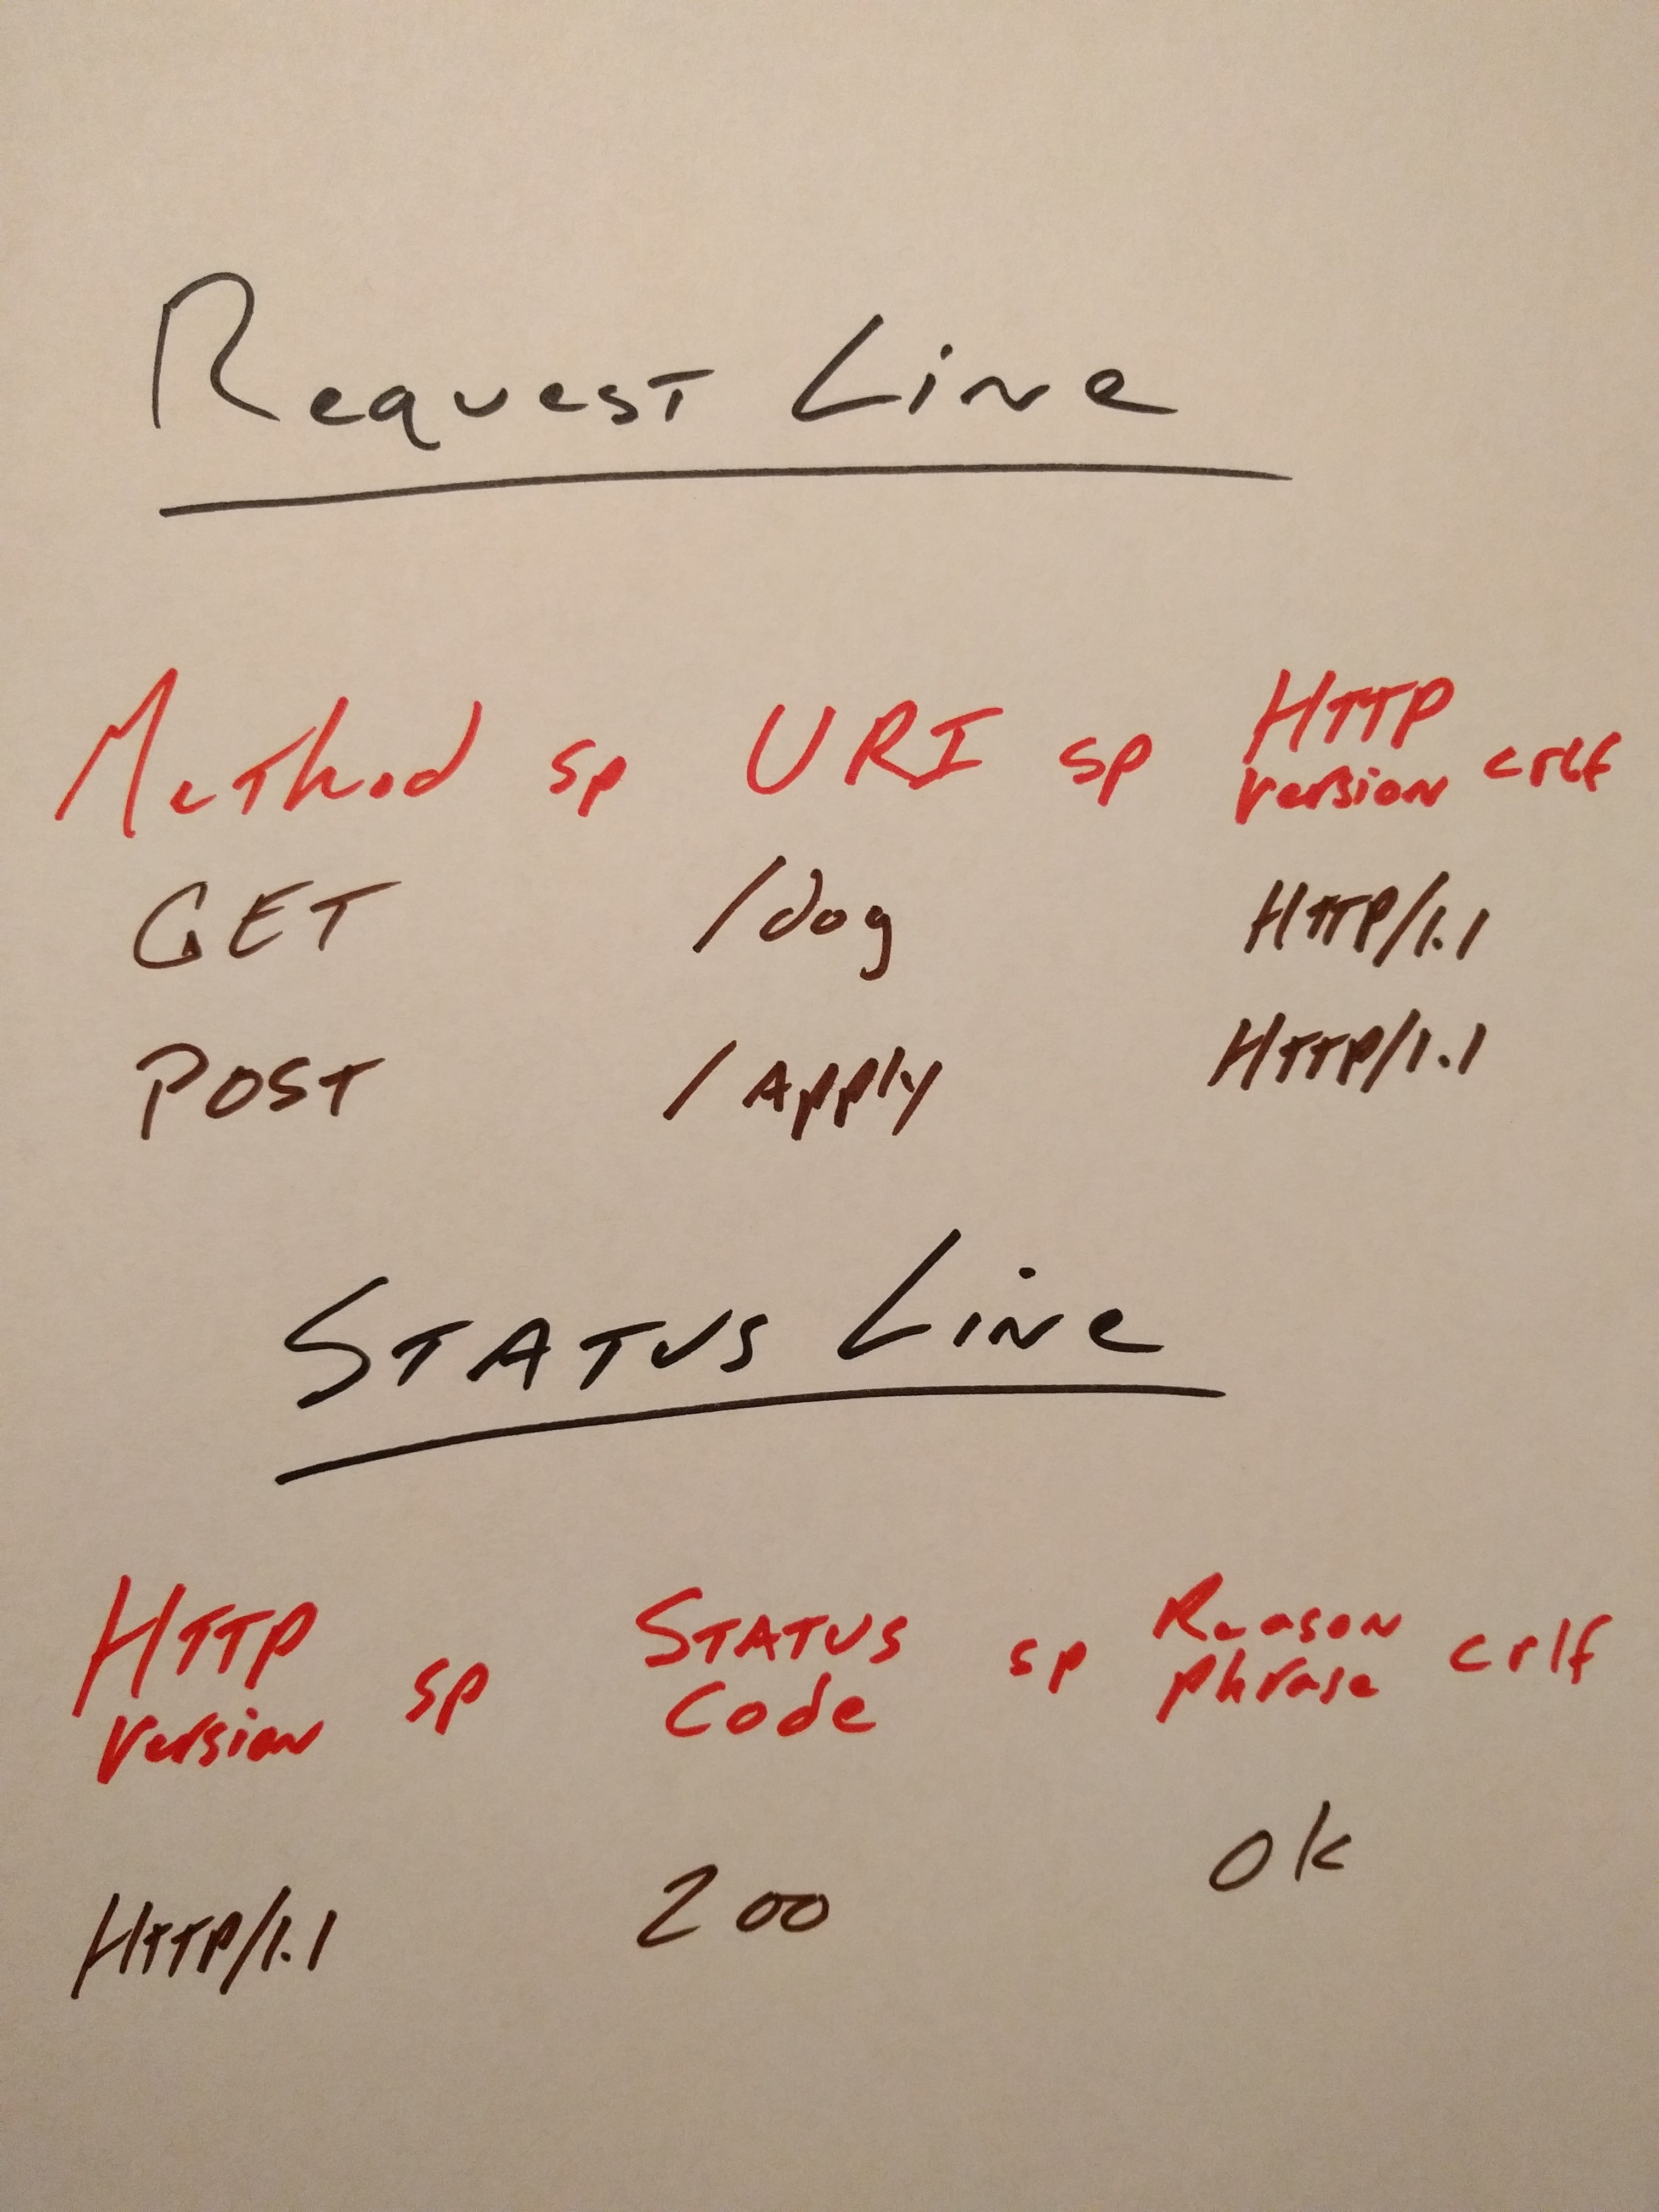 Request Line
Method sp URI sp HTTP version crlf
GET /dog HTTP/1.1
POST /Apply HTTP/1.1
Status Line
HTTP version sp Status Code sp Reason phrase crlf
HTTP/1.1 200 OK